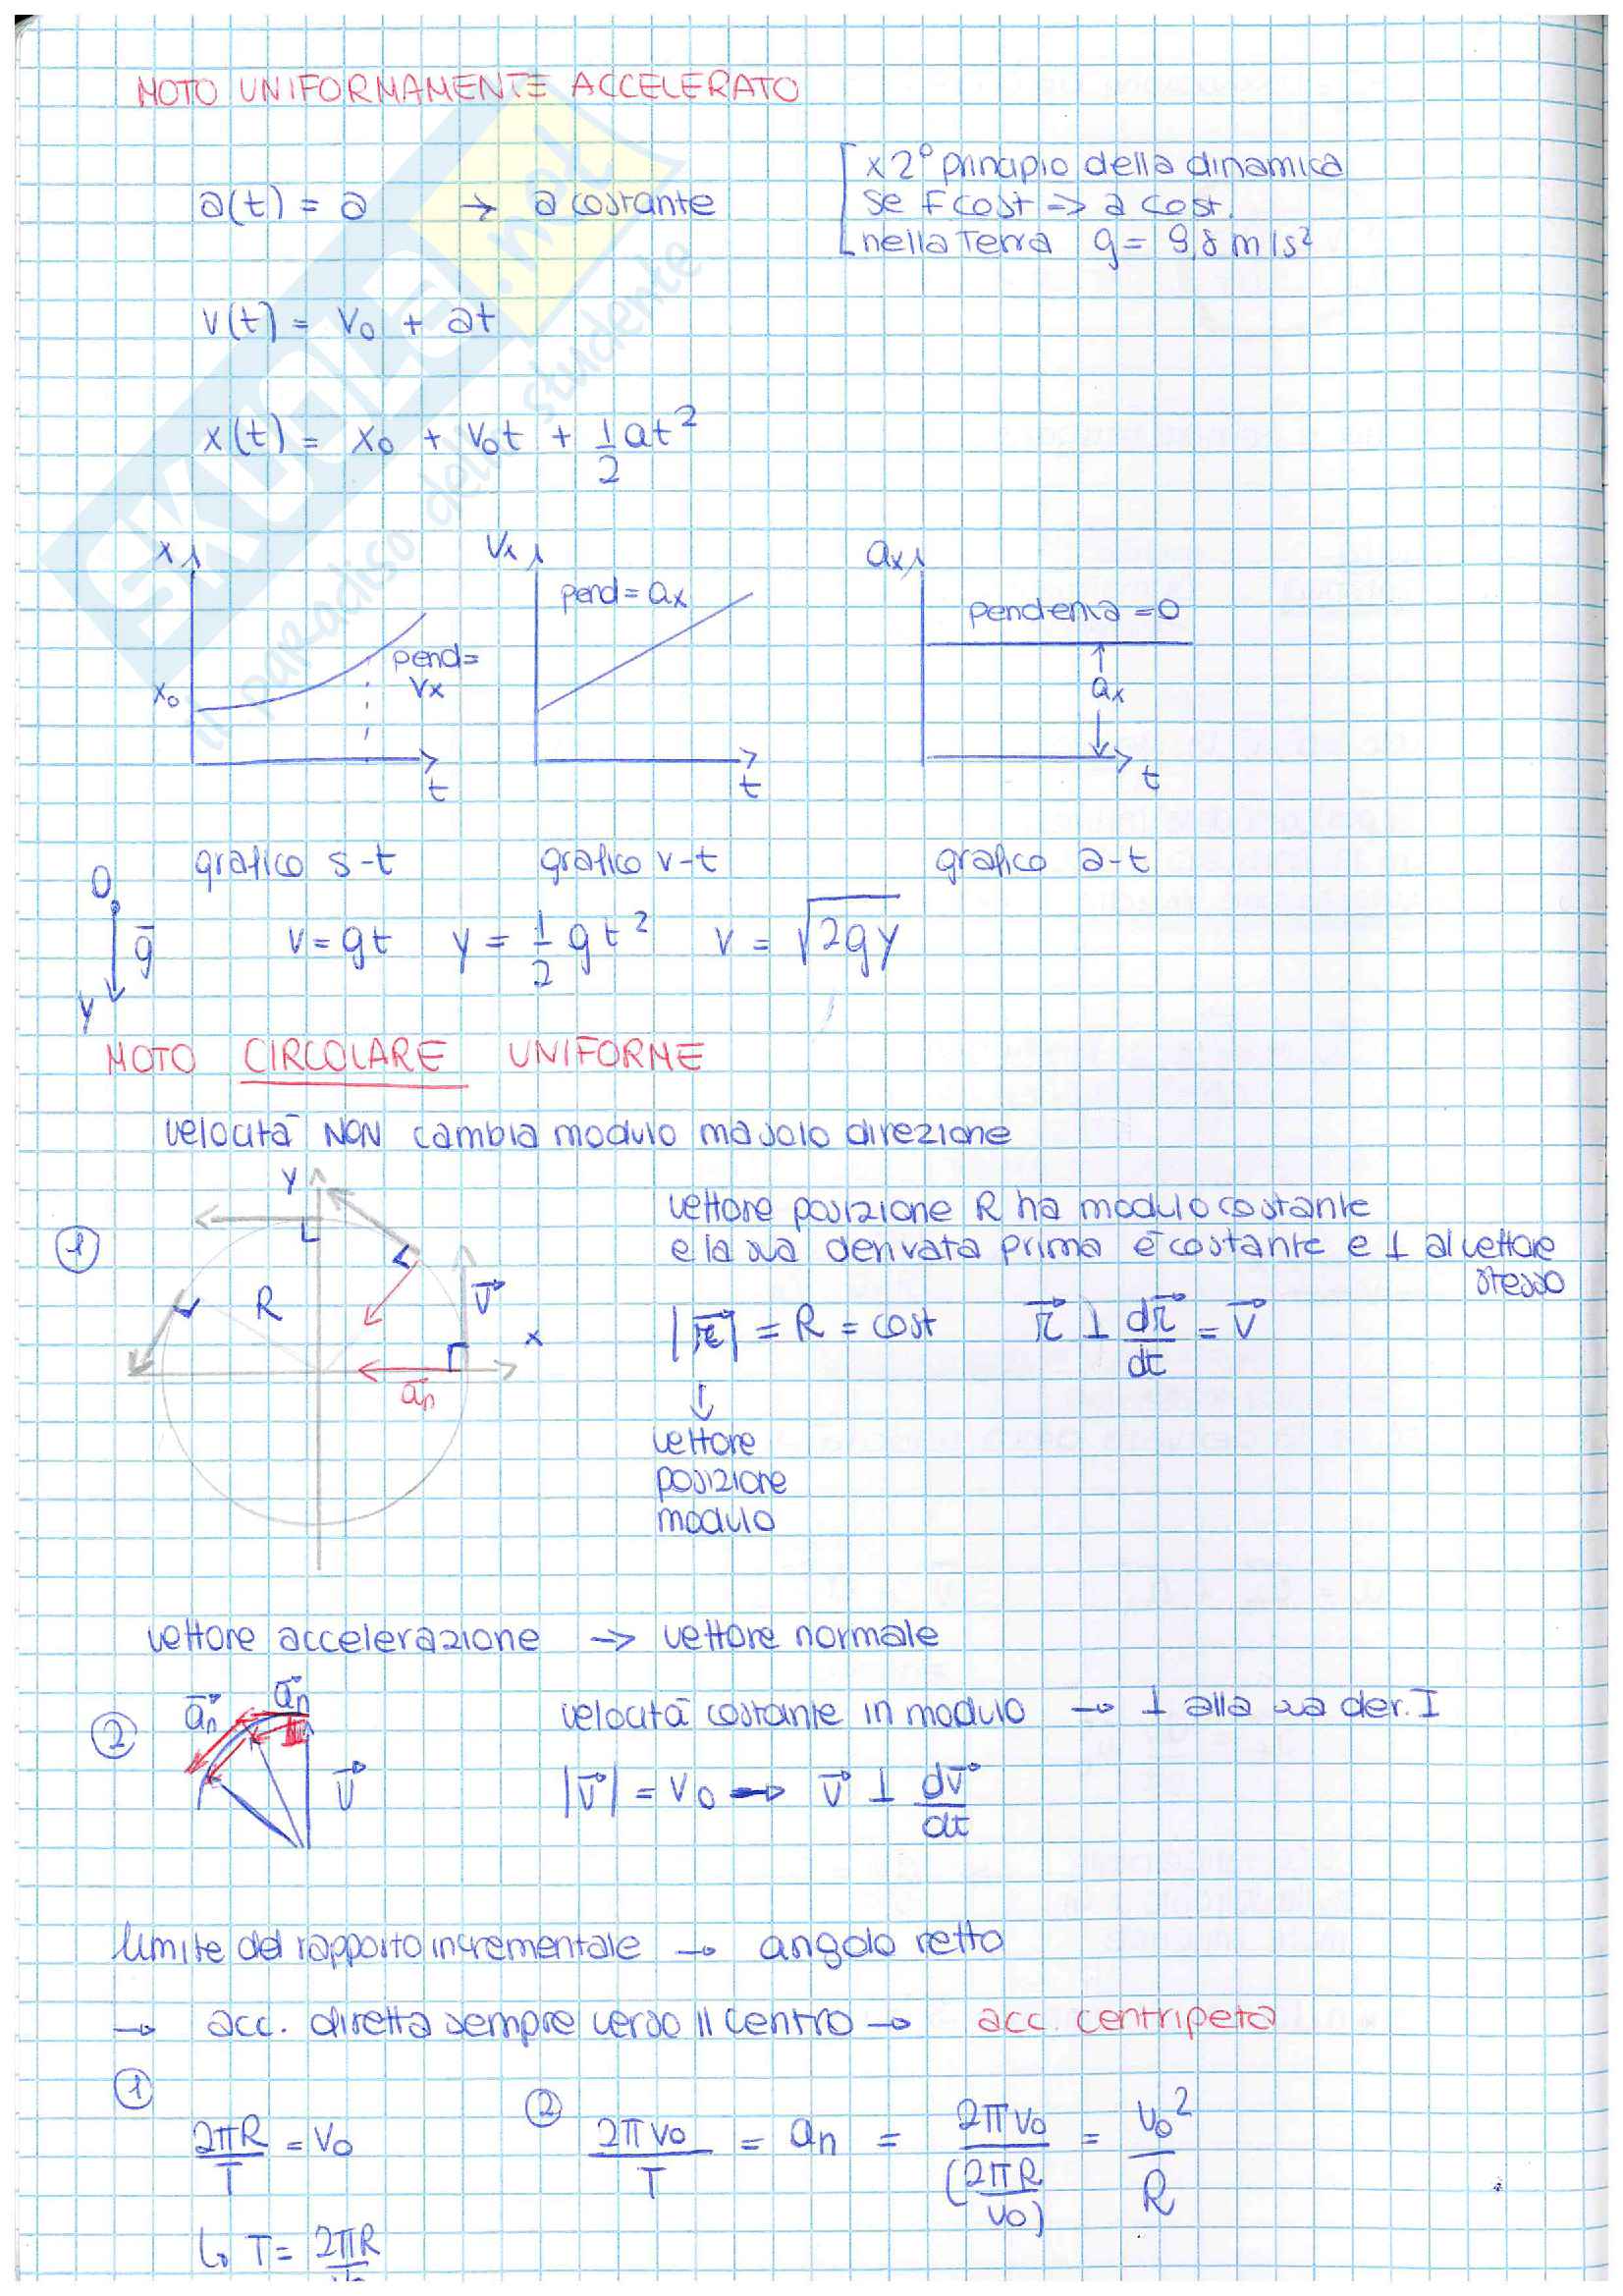 MOTO UNIFORMAMENTE ACCELERATO
a(t) = a → a costante
x 2° principio della dinamica
se F cost => a cost.
nella Terra g = 9,8 m/s²
v(t) = v₀ + at
x(t) = x₀ + v₀t + 1/2 at²
x
x₀
pend = vx
t
vx
pend = ax
t
ax
pendenza = 0
ax
t
grafico s-t
grafico v-t
grafico a-t
O
g
y
v = gt y = 1/2 gt² v = √2gy
MOTO CIRCOLARE UNIFORME
velocità NON cambia modulo ma solo direzione
1
y
R
v
x
an
vettore posizione R ha modulo costante
e la sua derivata prima è costante e ⊥ al vettore
stesso
|r| = R = cost r ⊥ dr/dt = v
↓
vettore
posizione
modulo
vettore accelerazione → vettore normale
2
an
an
v
velocità costante in modulo → ⊥ alla sua der. I
|v| = v₀ → v ⊥ dv/dt
limite del rapporto incrementale → angolo retto
→ acc. diretta sempre verso il centro → acc. centripeta
1
2πR/T = v₀
2
2πv₀/T = an = 2πv₀/(2πR/v₀) = v₀²/R
↳ T = 2πR
EKUOLE.net
il paradiso dello studente